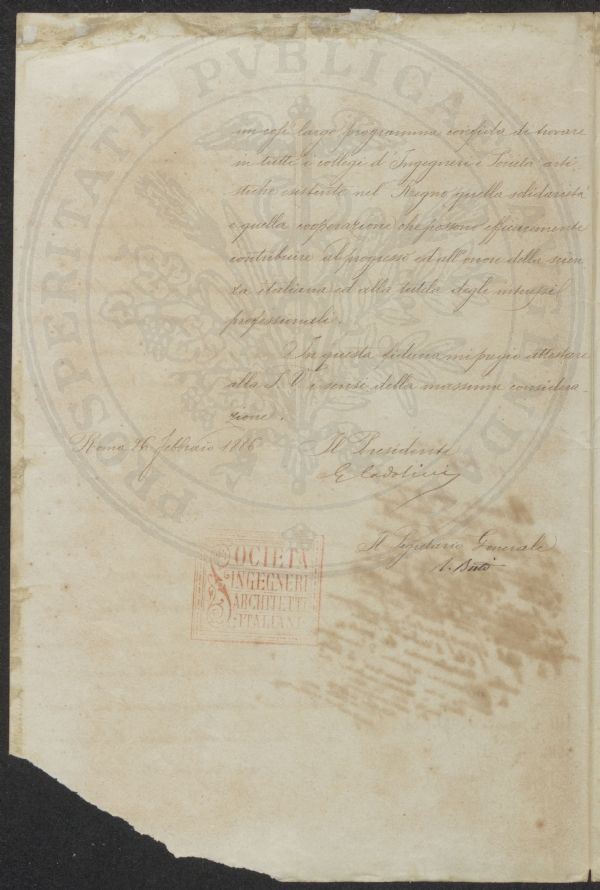 un così largo programma confida di trovare
in tutti i collegi d'Ingegneri e Società arti-
stiche esistenti nel Regno quella solidarietà
e quella cooperazione che possono efficacemente
contribuire al progresso ed all'onore della scien-
za italiana ed alla tutela degli interessi
professionali.
In questa fiducia mi pregio attestare
alla S.V. i sensi della massima considera-
zione.
Roma 26 febbraio 1886
Il Presidente
Cadolini
Il Segretario Generale
SOCIETÀ
INGEGNERI
ARCHITETTI
ITALIANI
PROSPERITATI PVBLICAE